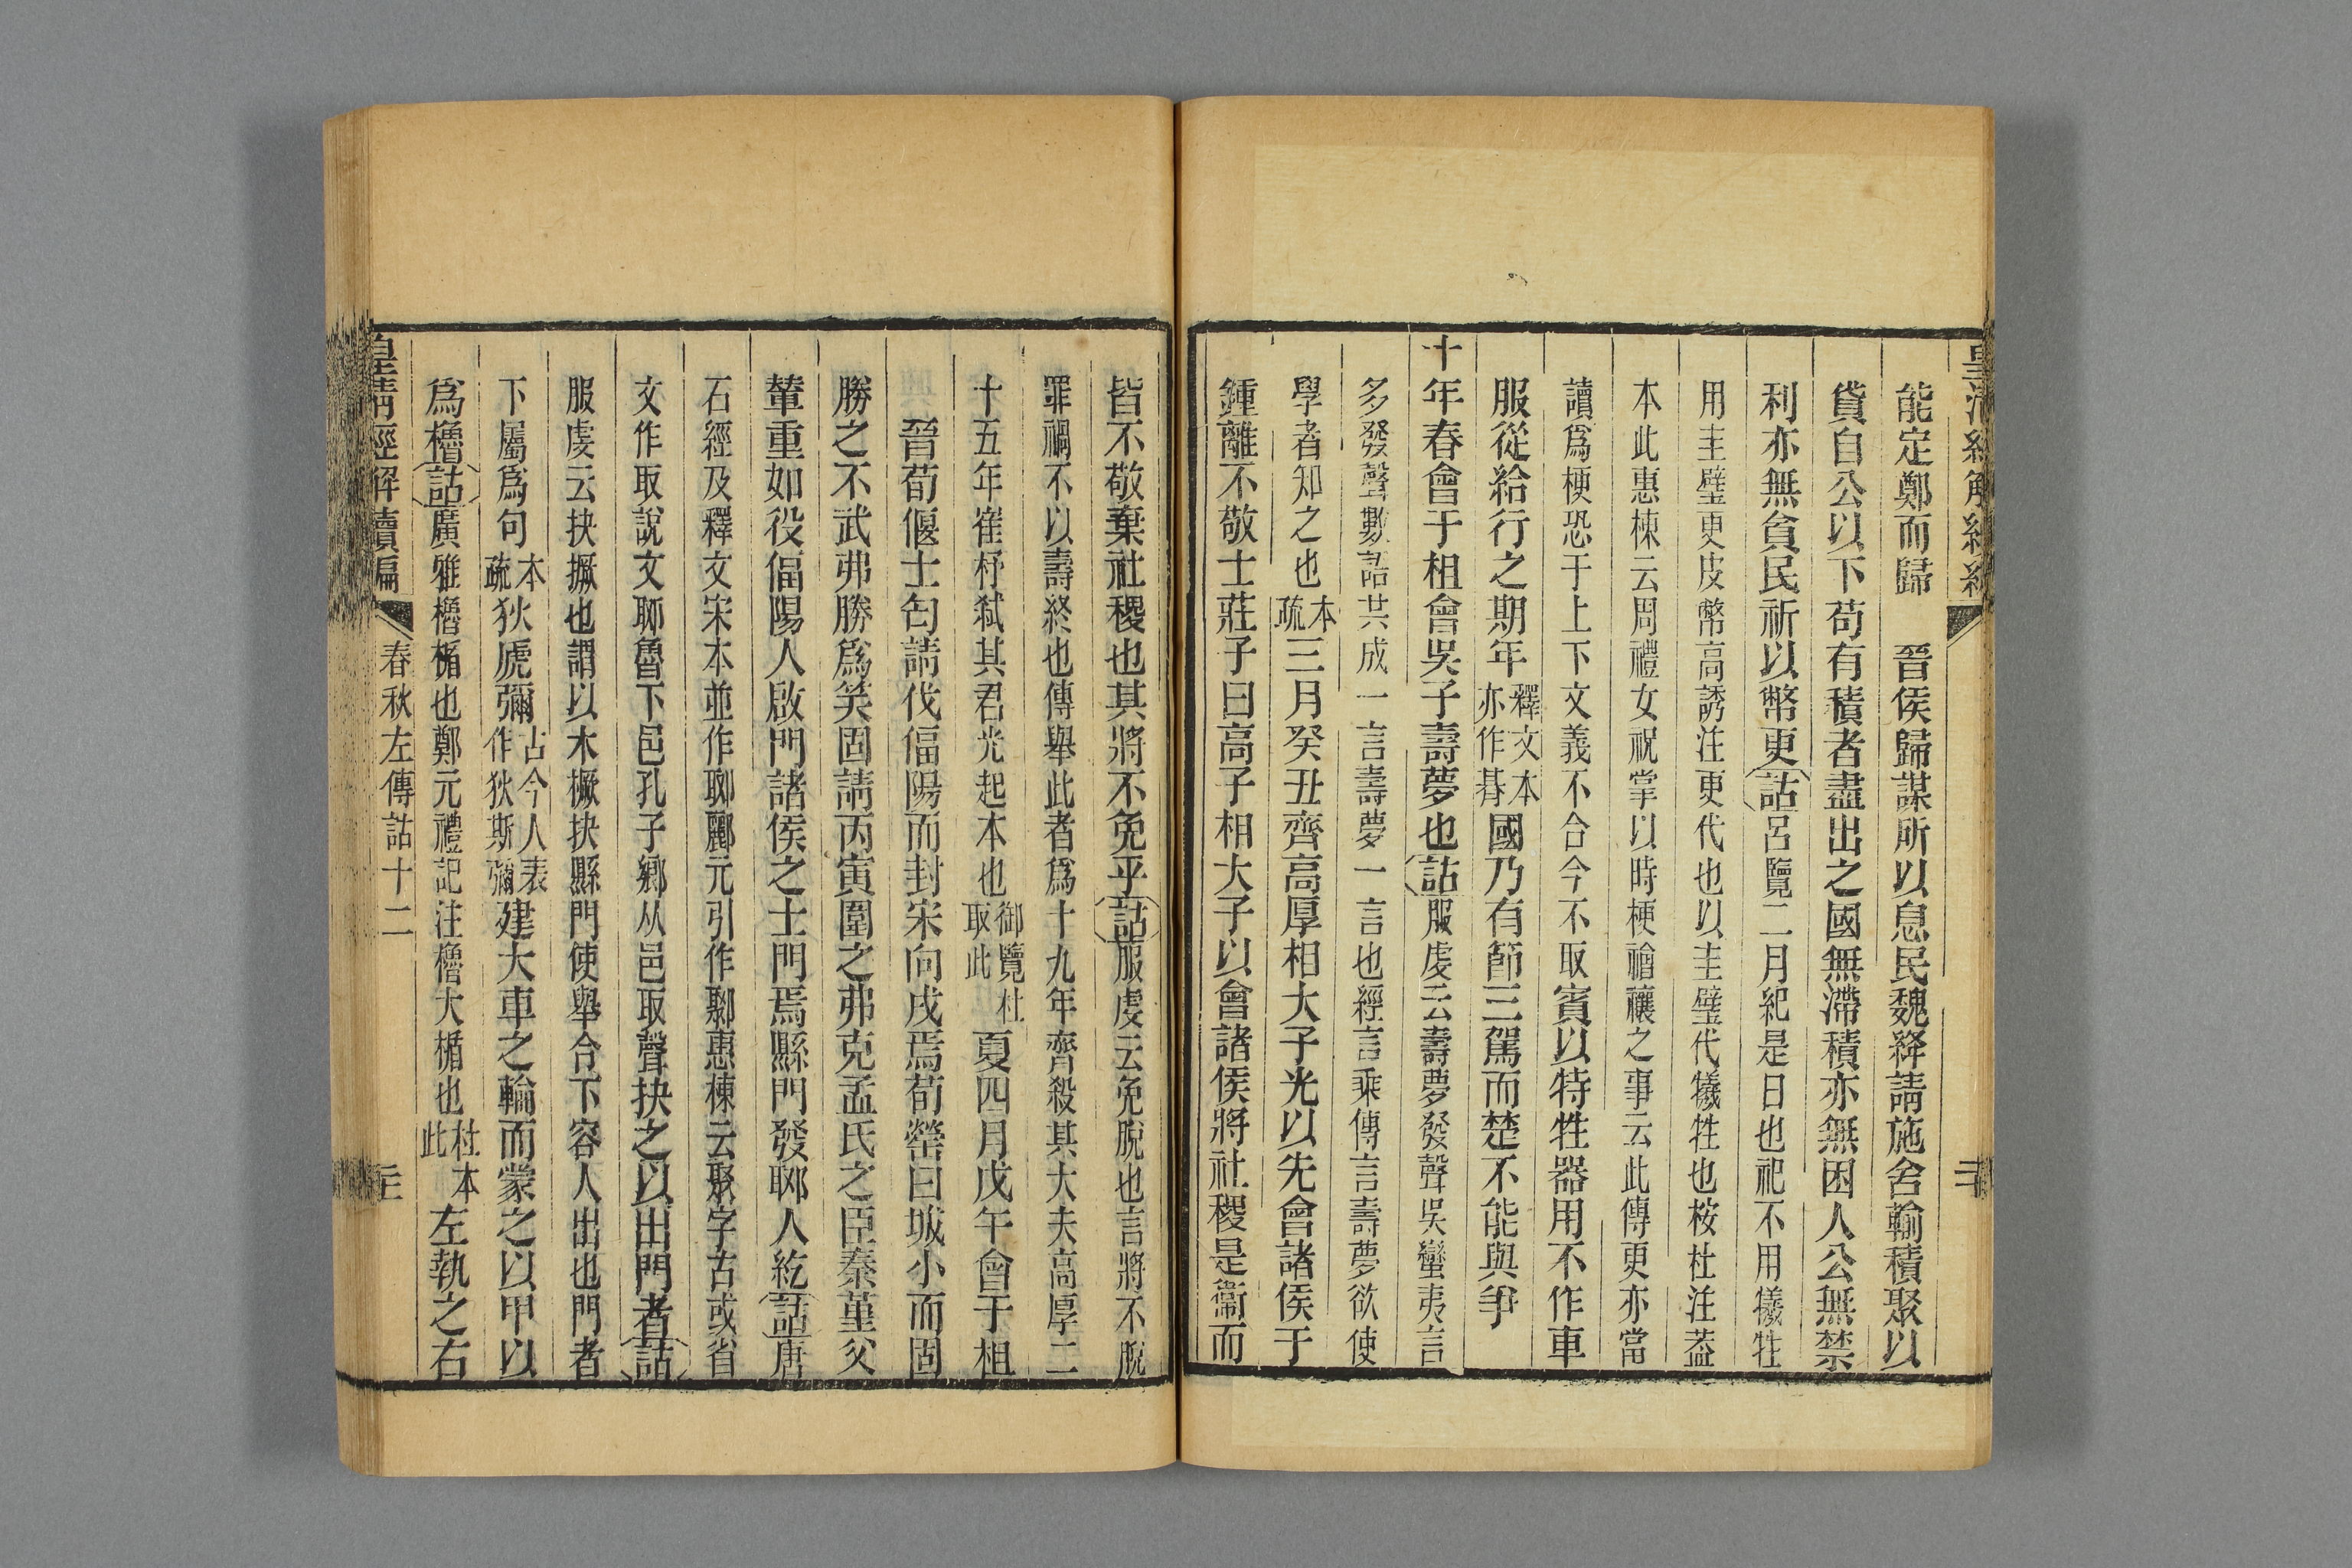 能定鄭而歸　晉侯歸謀所以息民魏絳請施舍輸積聚以
貸自公以下苟有積者盡出之國無滯積亦無困人公無禁
利亦無貧民祈以幣更詁呂覽二月紀是日也祀不用犧牲
用圭璧更皮幣高誘注更代也以圭璧代犧牲也桉杜注葢
本此惠棟云周禮女祝掌以時梗禬禳之事云此傳更亦當
讀爲梗恐于上下文義不合今不取賓以特牲器用不作車
服從給行之期年釋文本亦作朞國乃有節三駕而楚不能與爭
十年春會于柤會吳子壽夢也詁服虔云壽夢發聲吳蠻夷言
多發聲數語共成一言壽夢一言也經言乘傳言壽夢欲使
學者知之也本疏三月癸丑齊高厚相大子光以先會諸侯于
鍾離不敬士莊子曰高子相大子以會諸侯將社稷是衞而
皆不敬棄社稷也其將不免乎詁服虔云免脫也言將不脫
罪禍不以壽終也傳舉此者爲十九年齊殺其大夫高厚二
十五年崔杼弑其君光起本也御覽杜取此夏四月戊午會于柤
晉荀偃士匄請伐偪陽而封宋向戌焉荀罃曰城小而固
勝之不武弗勝爲笑固請丙寅圍之弗克孟氏之臣秦堇父
輦重如役偪陽人啟門諸侯之士門焉縣門發郰人紇詁唐
石經及釋文宋本並作郰酈元引作鄹惠棟云聚字古或省
文作取說文郰魯下邑孔子鄉从邑取聲抉之以出門者詁
服虔云抉撅也謂以木橛抉縣門使舉合下容人出也門者
下屬爲句本疏狄虒彌古今人表作狄斯彌建大車之輪而蒙之以甲以
爲櫓詁廣雅櫓楯也鄭元禮記注櫓大楯也杜本此左執之右
皇清經解續編　春秋左傳詁十二